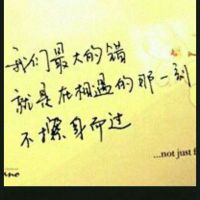 我们最大的错
就是在相遇的那一刻
不擦身而过
...not just f